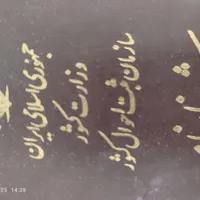 جمهوری اسلامی ایران
وزارت کشور
سازمان ثبت احوال کشور
شناسنامه
14:28